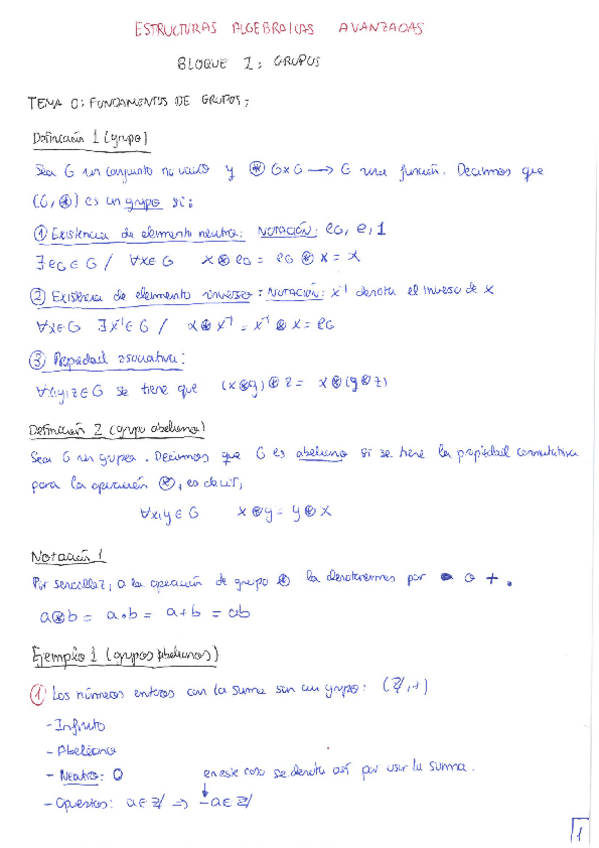 ESTRUCTURAS ALGEBRAICAS AVANZADAS
BLOQUE I: GRUPOS
TEMA 0: FUNDAMENTOS DE GRUPOS:
Definición 1 (grupo)
Sea G un conjunto no vacío y ⊛ G×G → G una función. Decimos que
(G, ⊛) es un grupo si:
① Existencia de elemento neutro: NOTACIÓN: eG, e, 1
∃ eG ∈ G / ∀x∈G x ⊛ eG = eG ⊛ x = x
② Existencia de elemento inverso: NOTACIÓN: x⁻¹ denota el inverso de x
∀x∈G ∃x⁻¹∈G / x ⊛ x⁻¹ = x⁻¹ ⊛ x = eG
③ Propiedad asociativa:
∀x,y,z∈G se tiene que (x⊛y)⊛z = x⊛(y⊛z)
Definición 2 (grupo abeliano)
Sea G un grupo. Decimos que G es abeliano si se tiene la propiedad conmutativa
para la operación ⊛, es decir,
∀x,y∈G x⊛y = y⊛x
Notación 1
Por sencillez, a la operación de grupo ⊛ la denotaremos por • o + .
a⊛b = a•b = a+b = ab
Ejemplo 1 (grupos abelianos)
① Los números enteros con la suma son un grupo: (ℤ,+)
- Infinito
- Abeliano
- Neutro: 0
en este caso se denota así por usar la suma.
- Opuestos: a∈ℤ ⇒ -a∈ℤ
1